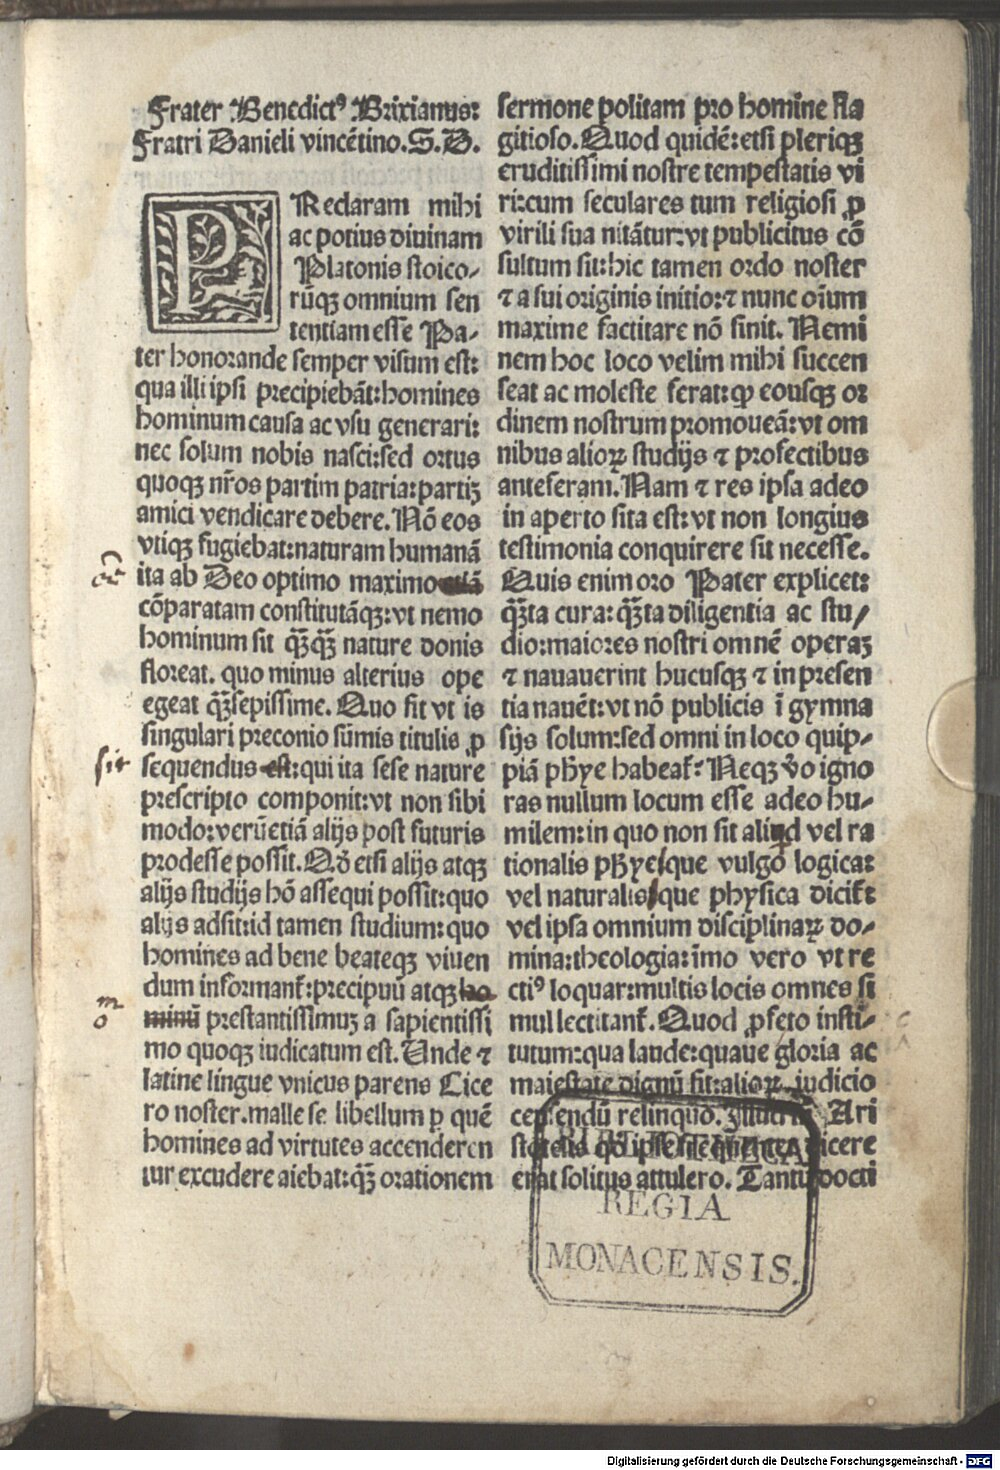 Frater Benedictꝰ Brixianus:
Fratri Danieli vincẽtino. S. D.
PReclaram mihi
ac potius diuinam
Platonis stoico-
rũqꝫ omnium sen
tentiam esse Pa-
ter honorande semper visum est:
qua illi ipsi precipiebãt: homines
hominum causa ac vsu generari:
nec solum nobis nasci: sed ortus
quoqꝫ nr̃os partim patria: partiꝫ
amici vendicare debere. Nõ eos
vtiqꝫ fugiebat: naturam humanã
ita ab Deo optimo maximo
cõparatam constitutãqꝫ: vt nemo
hominum sit qꝫ̃qꝫ̃ nature donis
floreat. quo minus alterius ope
egeat qꝫ̃sepissime. Quo fit vt is
singulari preconio sũmis titulis ꝓ
sequendus est: qui ita sese nature
prescripto componit: vt non sibi
modo: verũetiã alijs post futuris
prodesse possit. Qð etsi alijs atqꝫ
alijs studijs hõ assequi possit: quo
alijs adsit: id tamen studium: quo
homines ad bene beateqꝫ viuen
dum informant᷑: precipuũ atqꝫ ho
minũ prestantissimuꝫ a sapientissi
mo quoqꝫ iudicatum est. Unde ⁊
latine lingue vnicus parens Cice
ro noster. malle se libellum ꝑ quẽ
homines ad virtutes accenderen
tur excudere aiebat: qꝫ̃ orationem
sit
m
o
sermone politam pro homine fla
gitioso. Quod quidẽ: etsi pleriqꝫ
eruditissimi nostre tempestatis vi
ri: cum seculares tum religiosi ꝓ
virili sua nitãtur: vt publicitus cõ
sultum sit: hic tamen ordo noster
⁊ a sui originis initio: ⁊ nunc oĩum
maxime factitare nõ sinit. Nemi
nem hoc loco velim mihi succen
seat ac moleste ferat: ꝙ eousqꝫ or
dinem nostrum promoueã: vt om
nibus alioꝝ studijs ⁊ profectibus
anteferam. Nam ⁊ res ipsa adeo
in aperto sita est: vt non longius
testimonia conquirere sit necesse.
Quis enim oro Pater explicet:
qꝫ̃ta cura: qꝫ̃ta diligentia ac stu/
dio: maiores nostri omnẽ operaꝫ
⁊ nauauerint hucusqꝫ ⁊ in presen
tia nauẽt: vt nõ publicis ĩ gymna
sijs solum: sed omni in loco quip-
piã ph̃ye habeat᷑: Neqꝫ ṽo igno
ras nullum locum esse adeo hu-
milem: in quo non sit aliqd vel ra
tionalis ph̃ye/que vulgo logica:
vel naturalis/que physica dicit᷑:
vel ipsa omnium disciplinaꝝ do-
mina: theologia: ĩmo vero vt re
ctiꝰ loquar: multis locis omnes si
mul lectitant᷑. Quod ꝓfeto insti-
tutum: qua laude: quaue gloria ac
maiestate dignũ sit: alioꝝ iudicio
censendũ relinquo. Illud Ari
stotelis dicere
erat solitus attulero. Tantũ docti
BIBLIOTHECA
REGIA
MONACENSIS.
Digitalisierung gefördert durch die Deutsche Forschungsgemeinschaft - DFG